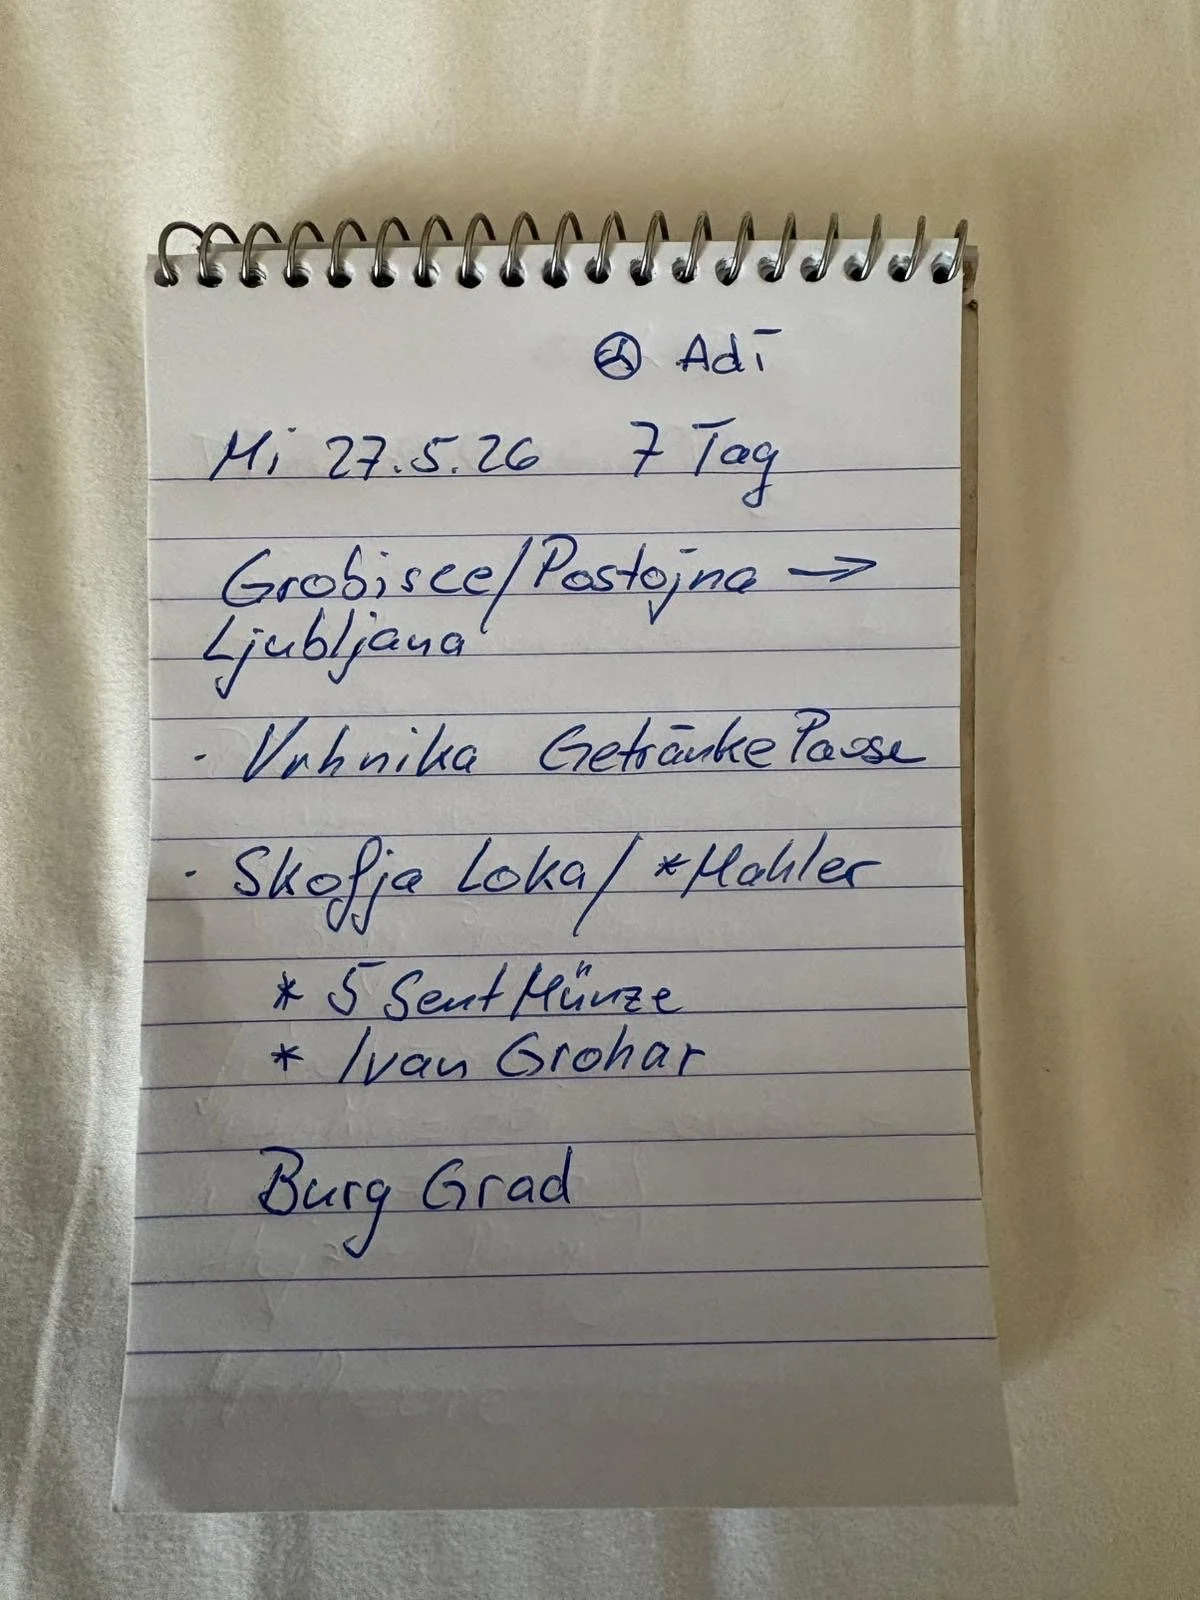 Adi
Mi 27.5.26 7 Tag
Grobisce/Postojna →
Ljubljana
- Vrhnika Getränke Pause
- Skofja Loka / *Mahler
* 5 Sent Münze
* Ivan Grohar
Burg Grad